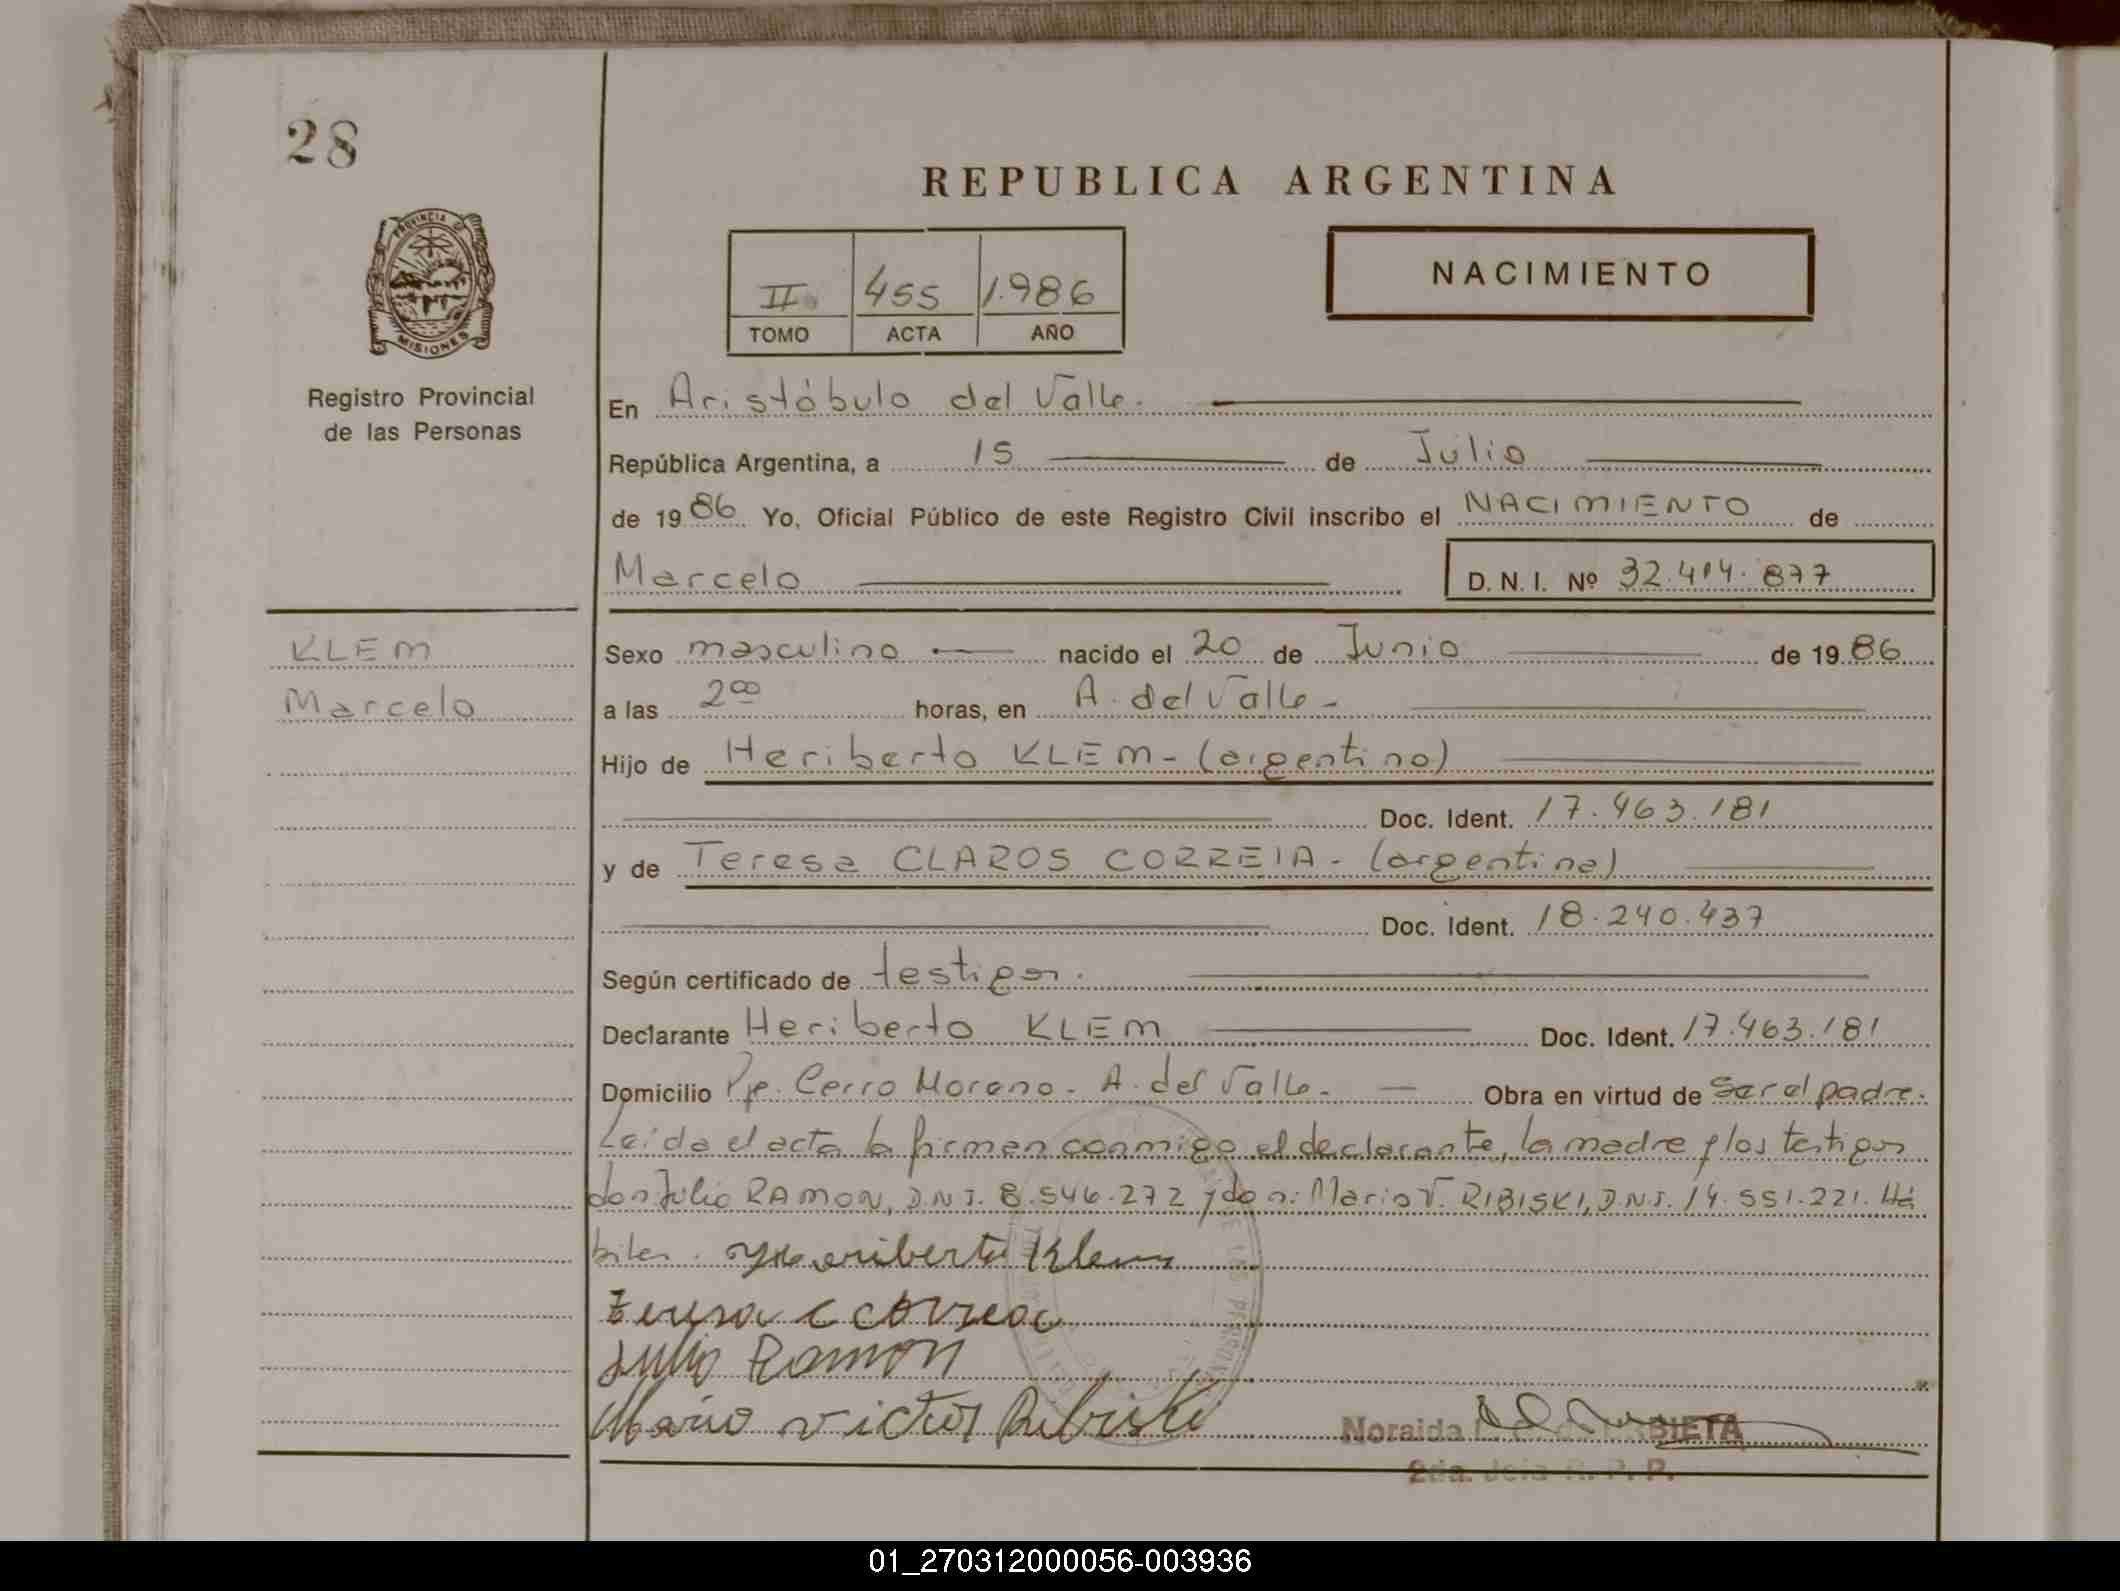 28
REPUBLICA ARGENTINA
PROVINCIA DE
MISIONES
II 455 1.986
TOMO ACTA AÑO
NACIMIENTO
Registro Provincial
de las Personas
En Aristóbulo del Valle.
República Argentina, a 15 de Julio
de 1986 Yo, Oficial Público de este Registro Civil inscribo el NACIMIENTO de
Marcelo D. N. I. Nº 32.414.877
KLEM
Marcelo
Sexo masculino nacido el 20 de Junio de 1986
a las 2 00 horas, en A. del Valle -
Hijo de Heriberto KLEM - (argentino)
Doc. Ident. 17.463.181
y de Teresa CLAROS CORREIA - (argentina)
Doc. Ident. 18.240.437
Según certificado de testigos.
Declarante Heriberto KLEM Doc. Ident. 17.463.181
Domicilio Pje. Cerro Moreno - A. del Valle - Obra en virtud de ser el padre.
Leída el acta la firman conmigo el declarante, la madre y los testigos
don: Julio RAMON, D.N.I. 8.546.272 y don: Mario V. RIBISKI, D.N.I. 14.551.221. Há
biles. Heriberto Klem
Teresa C Correa
Julio Ramon
Mario Victor Ribiski
Noraida BIETA
2da. Jefa R. P. P.
01_270312000056-003936